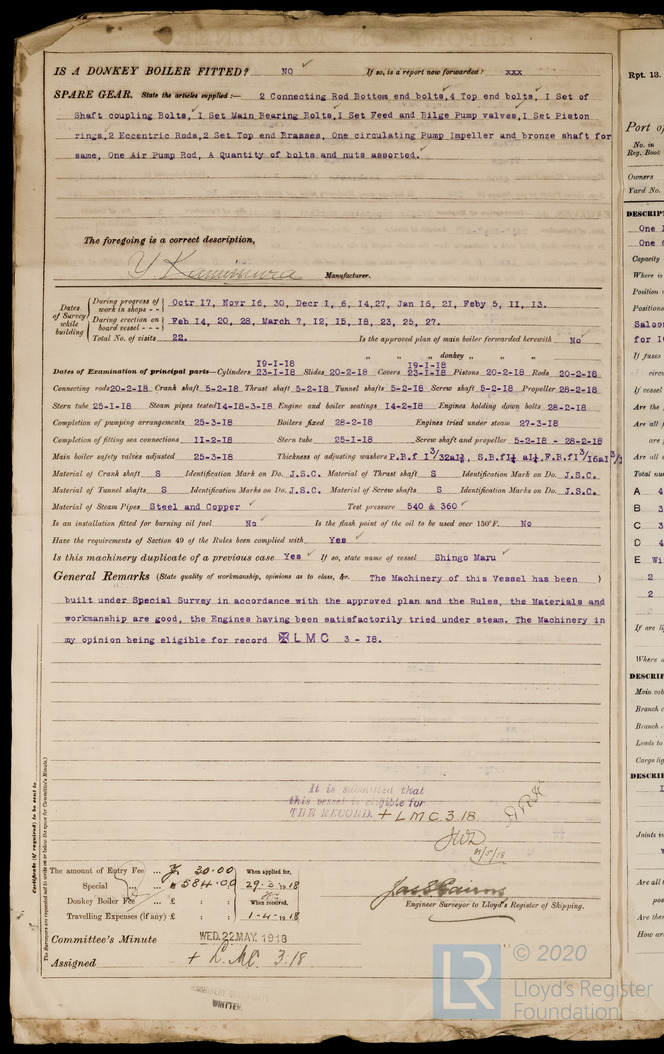 IS A DONKEY BOILER FITTED? NO ✓ If so, is a report now forwarded? xxx
SPARE GEAR. State the articles supplied:— 2 Connecting Rod Bottom end bolts, 4 Top end bolts, I Set of
Shaft coupling Bolts, I Set Main Bearing Bolts, I Set Feed and Bilge Pump valves, I Set Piston
rings, 2 Eccentric Rods, 2 Set Top end Brasses, One circulating Pump Impeller and bronze shaft for
same, One Air Pump Rod, A Quantity of bolts and nuts assorted. ✓
The foregoing is a correct description,
Y. Kamimura Manufacturer.
Dates of Survey while building
During progress of work in shops - - Octr 17, Novr 16, 30, Decr 1, 6, 14, 27, Jan 16, 21, Feby 5, 11, 13.
During erection on board vessel - - - Feb 14, 20, 28, March 7, 12, 15, 18, 23, 25, 27.
Total No. of visits 22. Is the approved plan of main boiler forwarded herewith No ✓
" " " donkey " " "
Dates of Examination of principal parts—Cylinders 19-I-18 23-I-18 Slides 20-2-18 Covers 19-1-18 23-I-18 Pistons 20-2-18 Rods 20-2-18
Connecting rods 20-2-18 Crank shaft 5-2-18 Thrust shaft 5-2-18 Tunnel shafts 5-2-18 Screw shaft 5-2-18 Propeller 28-2-18
Stern tube 25-1-18 Steam pipes tested 14-18-3-18 Engine and boiler seatings 14-2-18 Engines holding down bolts 28-2-18
Completion of pumping arrangements 25-3-18 Boilers fixed 28-2-18 Engines tried under steam 27-3-18
Completion of fitting sea connections 11-2-18 Stern tube 25-1-18 Screw shaft and propeller 5-2-18 - 28-2-18
Main boiler safety valves adjusted 25-3-18 Thickness of adjusting washers P.B.f 1 3/32
Material of Crank shaft S Identification Mark on Do. J.S.C. Material of Thrust shaft S Identification Mark on Do. J.S.C.
Material of Tunnel shafts S Identification Marks on Do. J.S.C. Material of Screw shafts S Identification Marks on Do. J.S.C.
Material of Steam Pipes Steel and Copper ✓ Test pressure 540 & 360 ✓
Is an installation fitted for burning oil fuel No ✓ Is the flash point of the oil to be used over 150°F. No
Have the requirements of Section 49 of the Rules been complied with Yes ✓
Is this machinery duplicate of a previous case Yes ✓ If so, state name of vessel Shingo Maru ✓
General Remarks (State quality of workmanship, opinions as to class, &c. The Machinery of this Vessel has been )
built under Special Survey in accordance with the approved plan and the Rules, the Materials and
workmanship are good, the Engines having been satisfactorily tried under steam. The Machinery in
my opinion being eligible for record ✠ L M C 3 - 18.
It is submitted that
this vessel is eligible for
THE RECORD. + LMC. 3.18
Certificate (if required) to be sent to
The Surveyors are requested not to write on or below the space for Committee's Minute.
The amount of Entry Fee ... 30.00 When applied for,
Special ... 584.00 29.3.1918
Donkey Boiler Fee ... £ : : When received,
Travelling Expenses (if any) £ : : 1-4-1918
Engineer Surveyor to Lloyd's Register of Shipping.
Committee's Minute WED. 22 MAY. 1918
Assigned + L.M.C. 3.18
WRITTEN.
© 2020
LR
Lloyd's Register
Foundation
Rpt. 13.
Port of
No. in
Reg. Book
Owners
Yard No.
DESCRIPT
One
One
Capacity
Where is
Position
Positions
Saloo
for
If fuses
circ
If vessel
Are the
Are all
are
Are all
Total nu
A 4
B 3
C 3
D 4
E Wi
2
2
If are li
Where a
DESCRIP
Main cab
Branch c
Branch c
Leads to
Cargo lig
DESCRIP
Joints in
Are all
pos
Are the
How ar